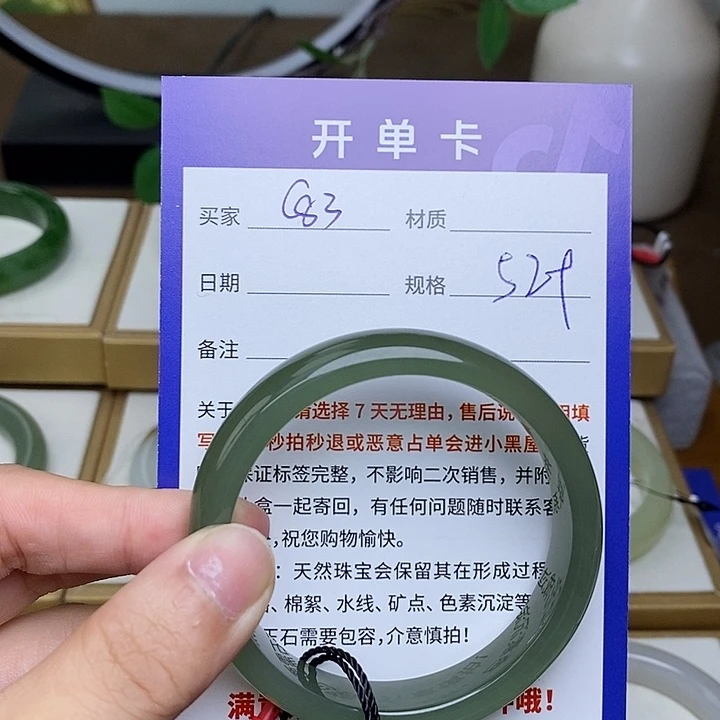 开单卡
买家 C83 材质
日期 规格 52叶
备注
关于 请选择7天无理由,售后说 用填
写 秒拍秒退或恶意占单会进小黑屋
保证标签完整,不影响二次销售,并附
盒一起寄回,有任何问题随时联系客
,祝您购物愉快。
:天然珠宝会保留其在形成过程
、棉絮、水线、矿点、色素沉淀等
玉石需要包容,介意慎拍!
满 哦!